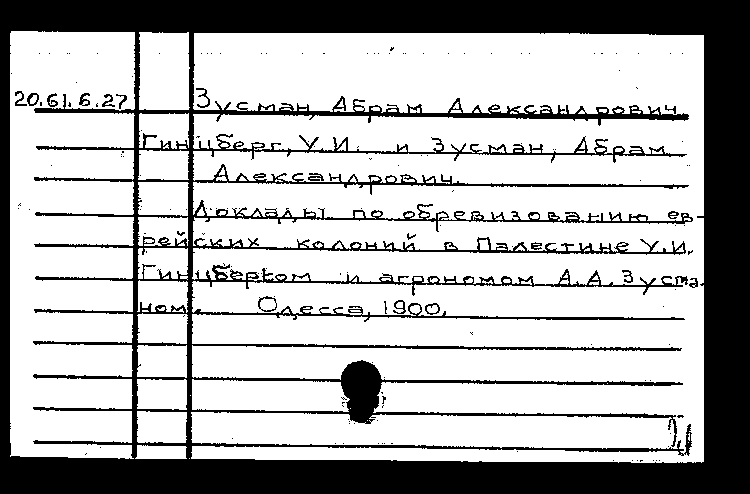 20.61.6.27 Зусман, Абрам Александрович.
Гинцберг, У.И. и Зусман, Абрам
Александрович.
Доклады по обревизованию ев-
рейских колоний в Палестине У.И.
Гинцбергом и агрономом А.А. Зусма-
ном. Одесса, 1900.